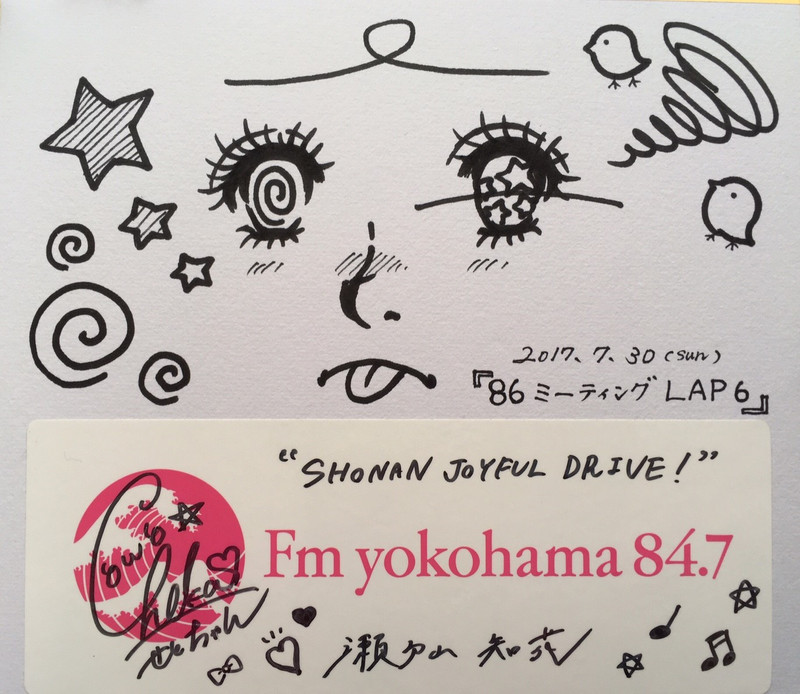 2017.7.30(sun)
『86ミーティング LAP6』
"SHONAN JOYFUL DRIVE!"
Fm yokohama 84.7
Chika
せとちゃん
瀬戸山 知苑